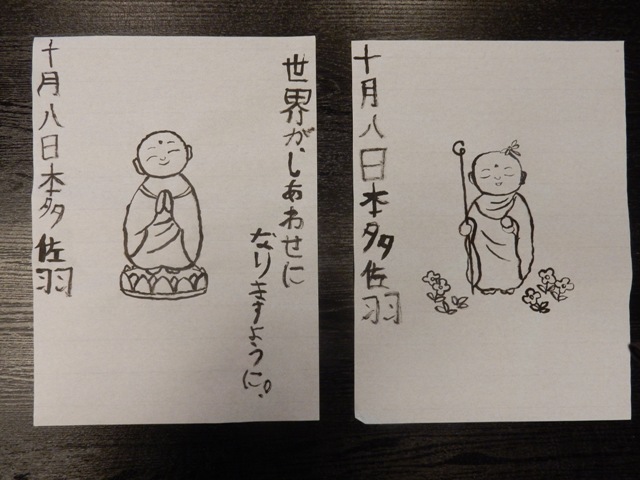 世界が、しあわせに
なりますように。
十月八日本多佐羽
十月八日本多佐羽